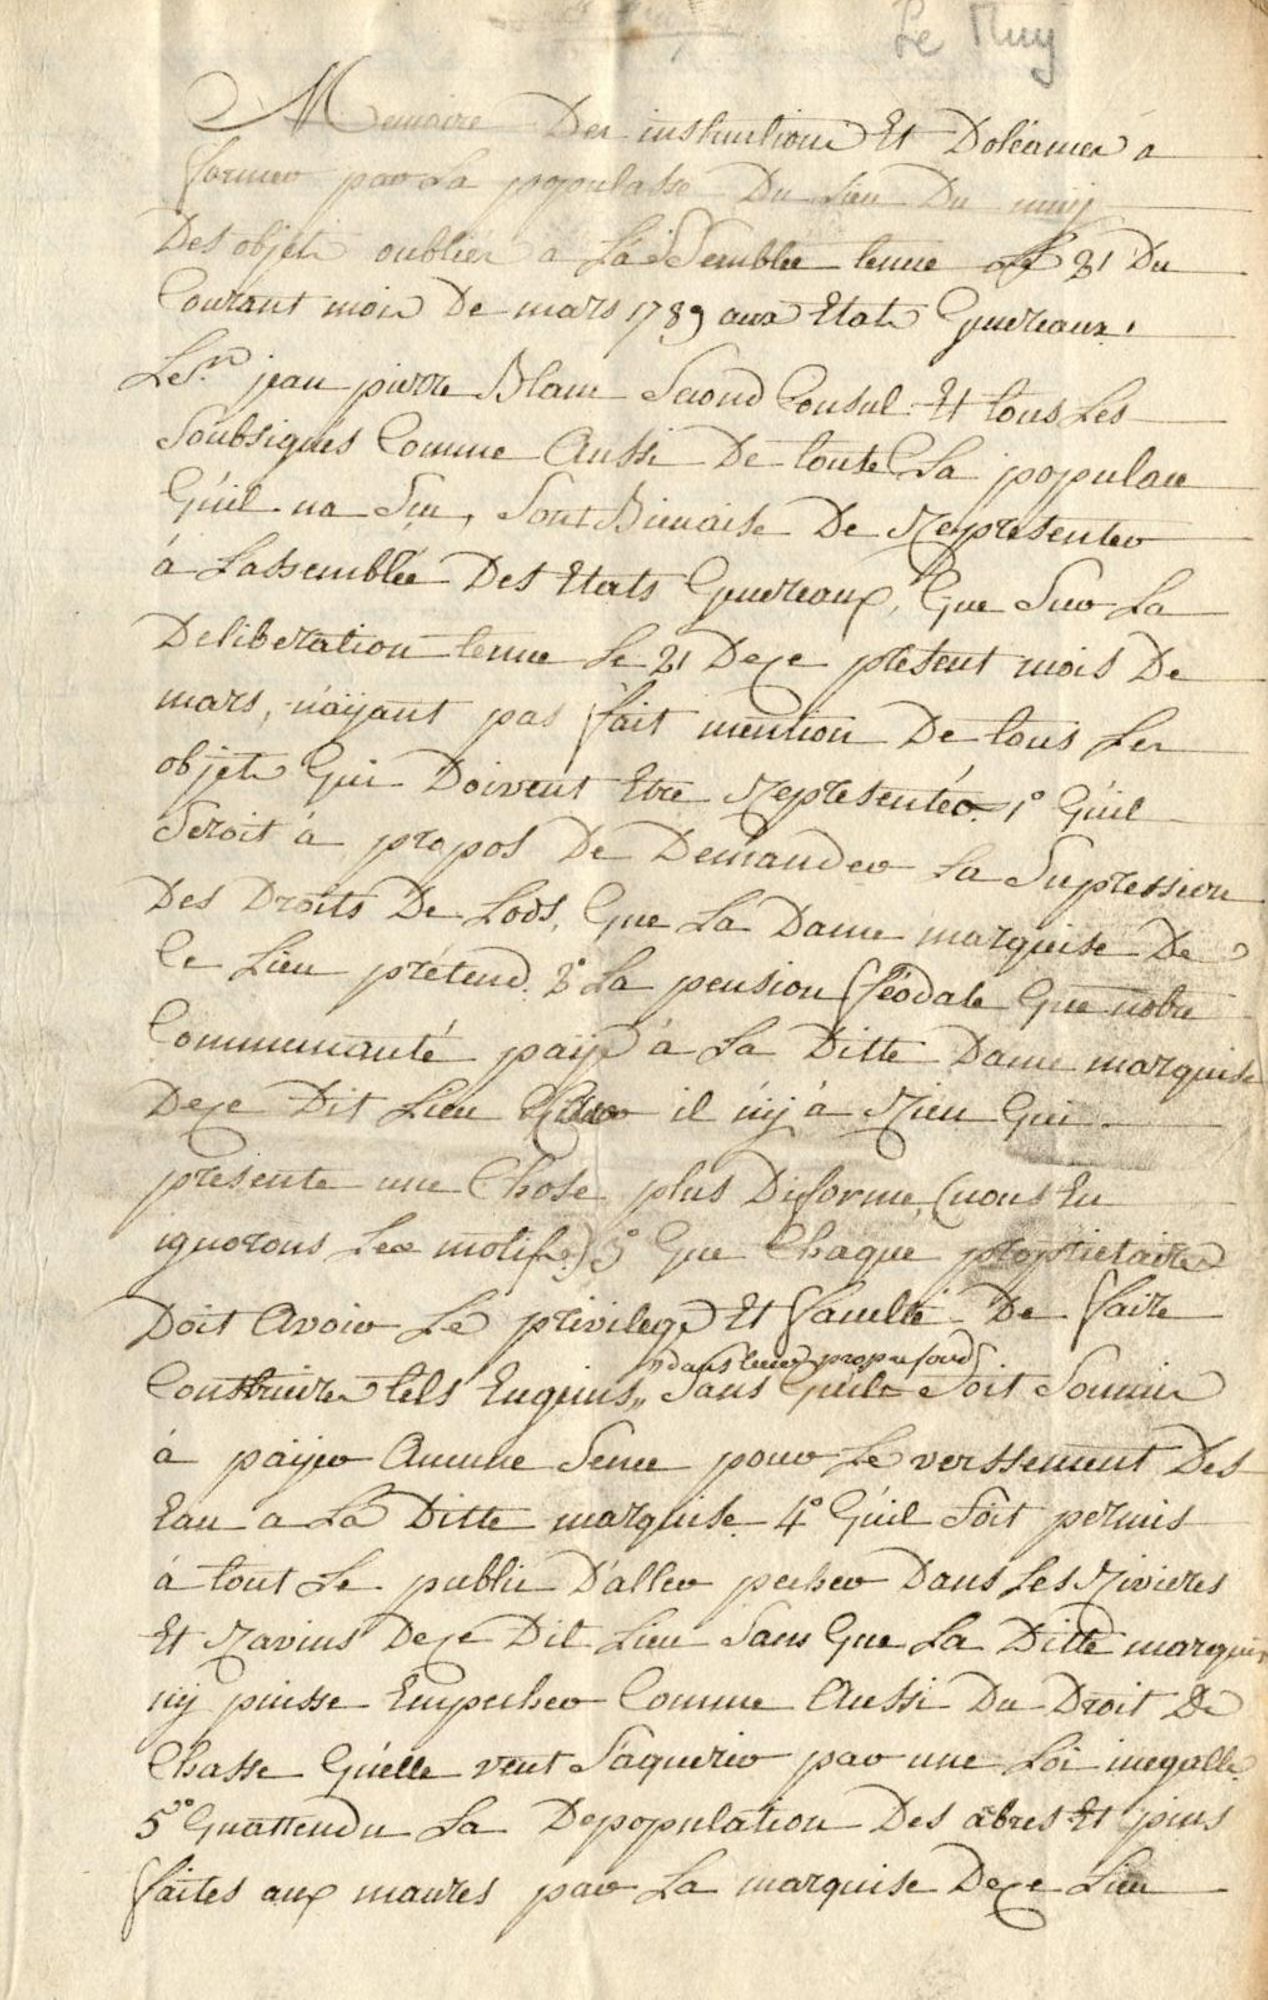 Le Muy
Memoire Des instructions Et Doléances a
former par La populasse Du Lieu Du muy
Des objets oubliés a La'ssemblée tenue le 21 Du
Courant mois De mars 1789 aux Etats Genereaux.
Le Sr. jean pierre Blanc Second Consul Et tous Les
Soubsignés Comme Aussi De toute La populace
Qúil na Sçu, Sont Bienaise De Representer
á Lassemblée Des Etats Genereaux, Que Sur La
Deliberation tenue Le 21 Dece present mois De
mars, n'aÿant pas fait mention De tous Les
objets Qui Doivent Etre Representés. 1° Qúil
Seroit á propos De Demander La Supression
Des Droits De Lods, Que La Dame marquise De
Ce Lieu prétend. 2° La pension féodale Que notre
Communauté paÿe á La Ditte Dame marquise
Dece Dit Lieu Car il nÿ á Rien Qui
presente une Chose plus Diforme, (nous En
ignorons Les motifs) 3° Que Chaque proprietaire
Doit Avoir Le privilege Et faculté De faire
Construire tels Engeins,, Sans Qúils Soit Soumis
,,dans leurs propre fonds
á païjer Aucune Sence pour Le verssement Des
Eau a La Ditte marquise. 4° Qúil Soit permis
á tout Le public D'aller pecher Dans Les Rivieres
Et Ravins Dece Dit Lieu Sans Que La Ditte marquise
nÿ puisse Empecher Comme Aussi Du Droit De
Chasse Qúelle veut S'aquerir par une Loi inegalle.
5° Quattendu La Depopulation Des abres Et pins
faites aux maures par La marquise Dece Lieu